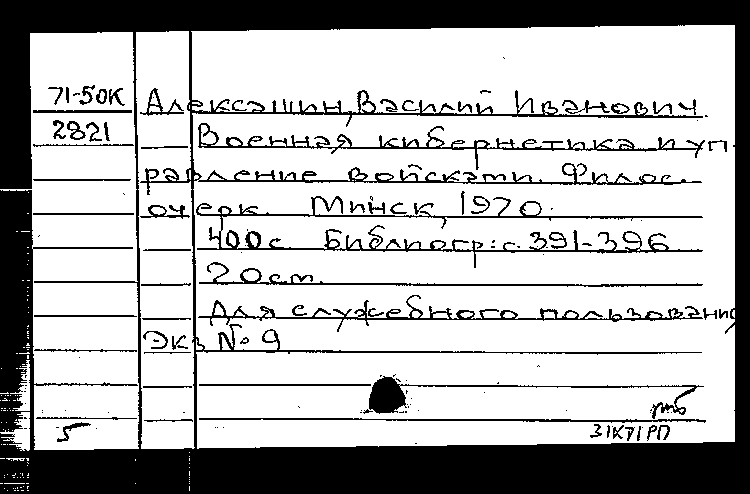 71-50К Алексашин, Василий Иванович.
2821 Военная кибернетика и уп-
равление войсками. Филос.
очерк. Минск, 1970.
400с. Библиогр: с. 391-396
20см.
Для служебного пользования
Экз № 9
5 31К71РП